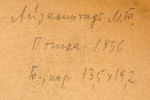 Айзенштадт М.Б.
Птица 1956
Б., кар. 13,5 x 19,2